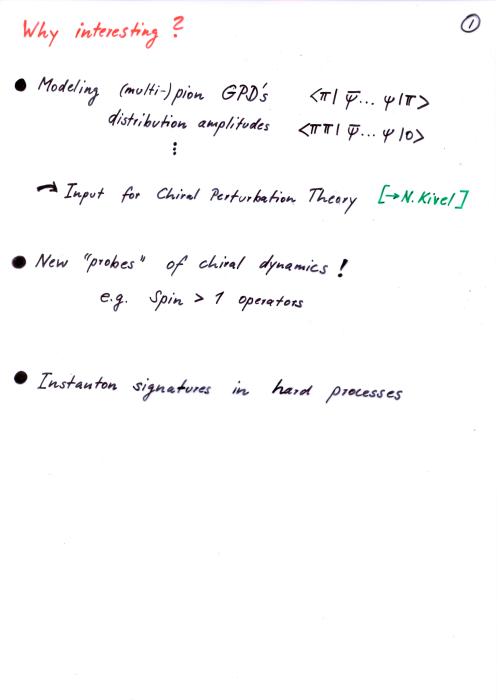 Why interesting?
①
● Modeling (multi-)pion GPD's <π| ψ̄... ψ |π>
distribution amplitudes <ππ| ψ̄... ψ |0>
⋮
→ Input for Chiral Perturbation Theory [→N. Kivel]
● New "probes" of chiral dynamics!
e.g. Spin > 1 operators
● Instanton signatures in hard processes